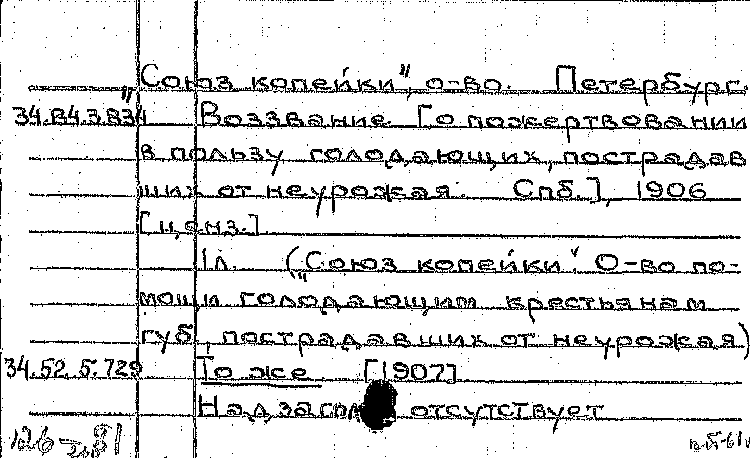 „Союз копейки", о-во. Петербург.
34.84.3.834 Воззвание [о пожертвовании
в пользу голодающих, пострадав
ших от неурожая. Спб.], 1906
[ценз.].
1л. („Союз копейки". О-во по-
мощи голодающим крестьянам
губ., пострадавших от неурожая)
34.52.5.729 То же [1907]
Надзагол отсутствует
126-